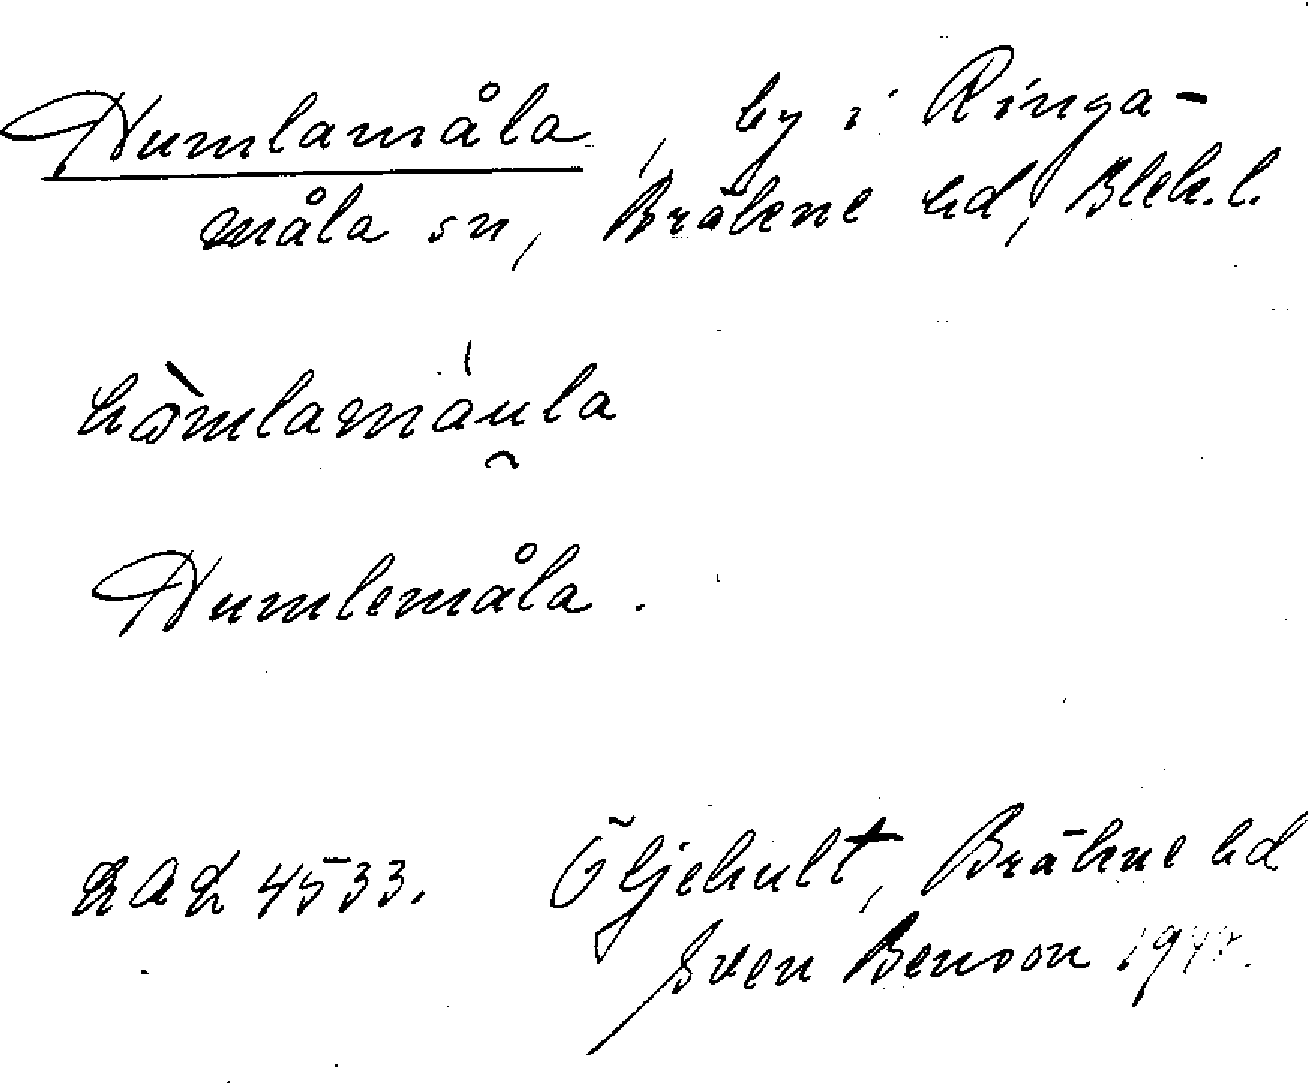 Humlamåla, by i Ringa-
måla sn, Bräkne hd, Blek. l.
hòmlamáu̯la
Humlemåla.
LAL 4533. Öljehult, Bräkne hd
Sven Benson